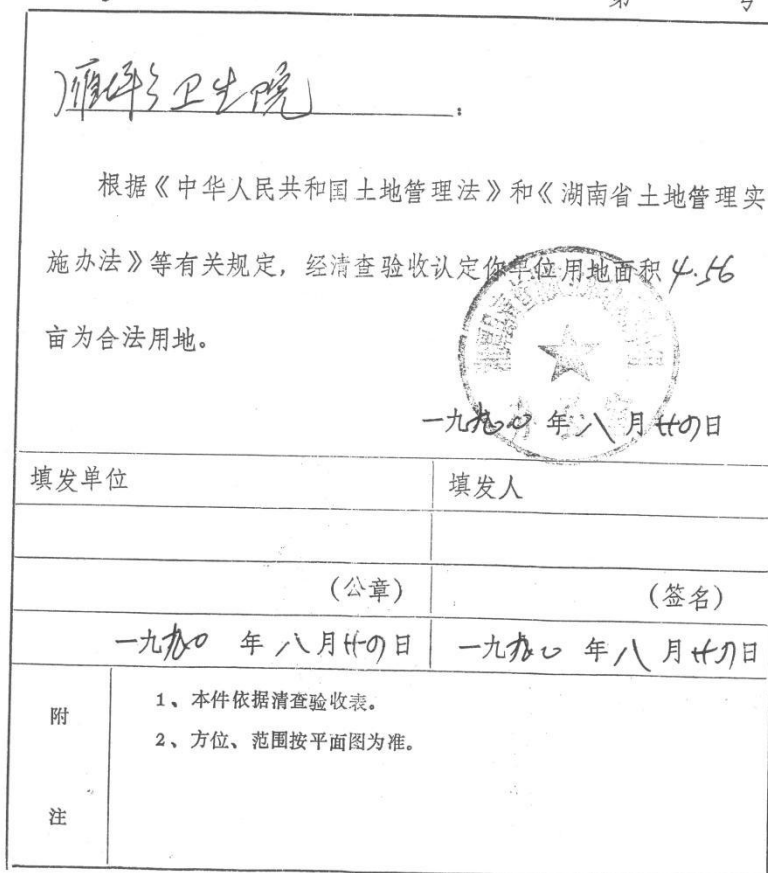 第 号
雁坪乡卫生院:
根据《中华人民共和国土地管理法》和《湖南省土地管理实
施办法》等有关规定，经清查验收认定你单位用地面积4.56
亩为合法用地。
一九九〇年八月廿四日
填发单位 填发人
(公章) (签名)
一九九〇年八月廿四日 一九九〇年八月廿四日
附 1、本件依据清查验收表。
2、方位、范围按平面图为准。
注